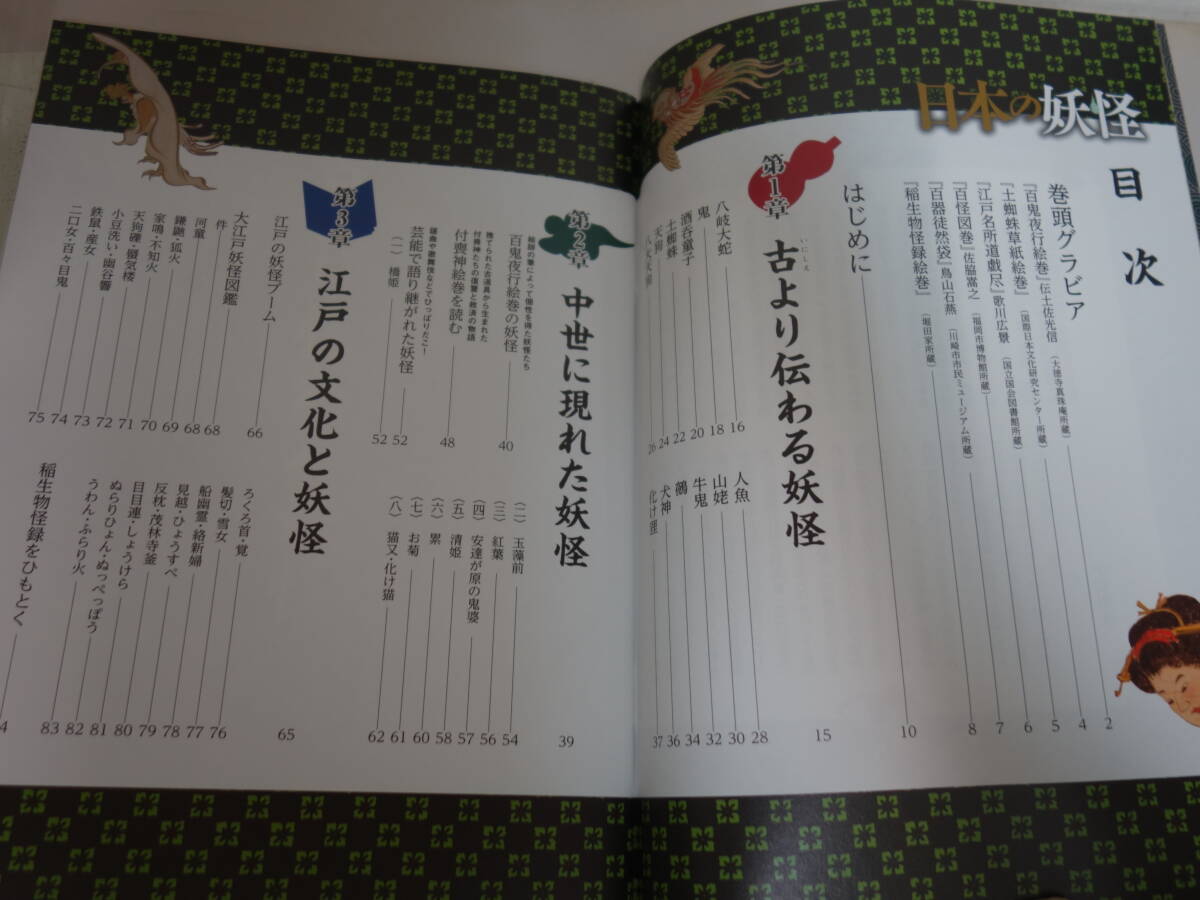 日本の妖怪
目次
巻頭グラビア 2
『百鬼夜行絵巻』伝土佐光信(大徳寺真珠庵所蔵) 4
『土蜘蛛草紙絵巻』(国際日本文化研究センター所蔵) 5
『江戸名所道戯尽』歌川広景(国立国会図書館所蔵) 6
『百怪図巻』佐脇嵩之(福岡市博物館所蔵) 7
『百器徒然袋』鳥山石燕(川崎市市民ミュージアム所蔵) 8
『稲生物怪録絵巻』(堀田家所蔵)
はじめに 10
第1章 古より伝わる妖怪 15
いにしえ
八岐大蛇 16
鬼 18
酒呑童子 20
土蜘蛛 22
天狗 24
八大天狗 26
人魚 28
山姥 30
牛鬼 32
鵺 34
犬神 36
化け狸 37
第2章 中世に現れた妖怪 39
絵師の筆によって個性を得た妖怪たち
百鬼夜行絵巻の妖怪 40
捨てられた古道具から生まれた
付喪神たちの復讐と救済の物語
付喪神絵巻を読む 48
謡曲や歌舞伎などでひっぱりだこ!
芸能で語り継がれた妖怪 52
(一) 橋姫 52
(二) 玉藻前 54
(三) 紅葉 56
(四) 安達が原の鬼婆 57
(五) 清姫 58
(六) 累 60
(七) お菊 61
(八) 猫又・化け猫 62
第3章 江戸の文化と妖怪 65
江戸の妖怪ブーム 66
大江戸妖怪図鑑
件 68
河童 68
鎌鼬・狐火 69
家鳴・不知火 70
天狗礫・蜃気楼 71
小豆洗い・幽谷響 72
鉄鼠・産女 73
二口女・百々目鬼 74
75
ろくろ首・覚 76
髪切・雪女 77
船幽霊・絡新婦 78
見越・ひょうすべ 79
反枕・茂林寺釜 80
目目連・しょうけら 81
ぬらりひょん・ぬっぺっぽう 82
うわん・ふらり火 83
稲生物怪録をひもとく 4